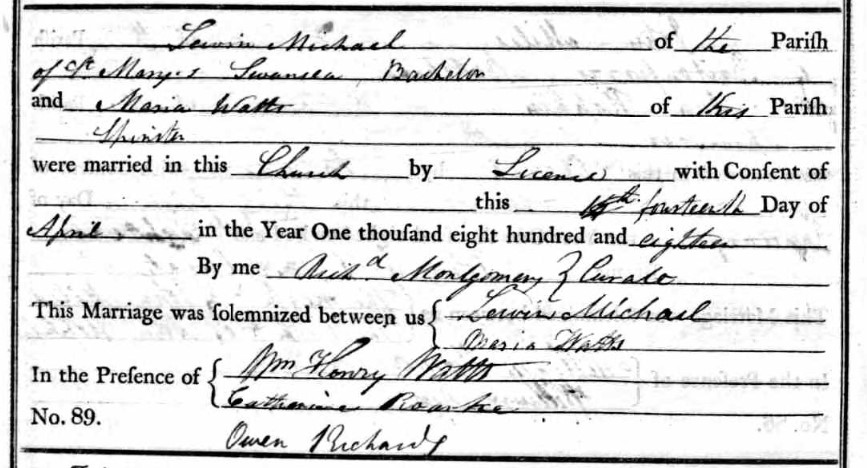 Lewin Michael of the Pariſh
of St Mary's Swansea Bachelor
and Maria Watts of this Pariſh
Spinster
were married in this Church by Licence with Conſent of
this fourteenth Day of
April in the Year One thouſand eight hundred and eighteen
By me Richd Montgomery Curate
This Marriage was ſolemnized between us { Lewin Michael
Maria Watts
In the Preſence of { Wm Henry Watts
Catherine Roarke
No. 89.
Owen Richards